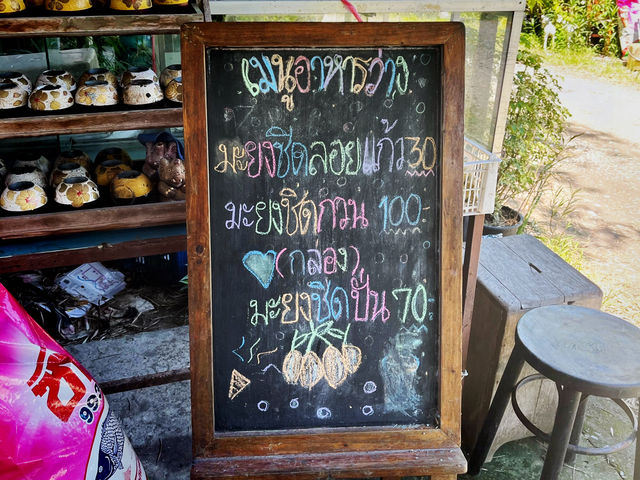 เมนูอาหารว่าง
มะยงชิดลอยแก้ว 30
มะยงชิดกวน 100.-
(กล่อง)
มะยงชิดปั่น 70.-